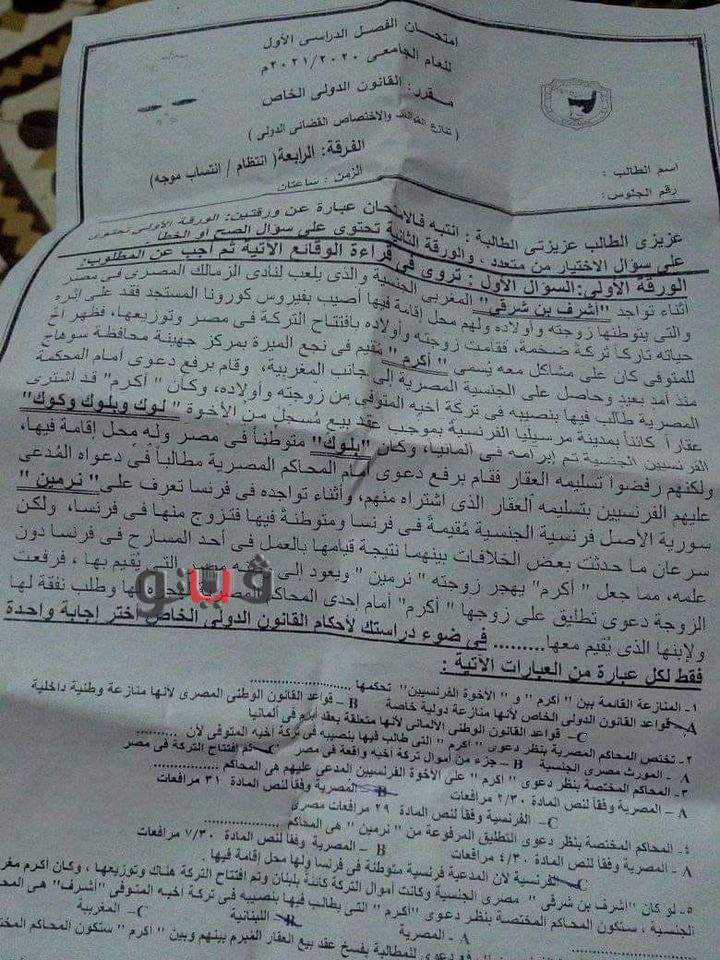 امتحان الفصل الدراسى الأول
للعام الجامعى ٢٠٢١/٢٠٢٠م
مقرر: القانون الدولى الخاص
( تنازع القوانين والاختصاص القضائى الدولى )
الفرقة: الرابعة( انتظام / انتساب موجه)
الزمن : ساعتان
اسم الطالب :
رقم الجلوس:
عزيزى الطالب عزيزتى الطالبة : انتبه فالامتحان عبارة عن ورقتين: الورقة الأولى تحتوى
على سؤال الاختيار من متعدد ، والورقة الثانية تحتوى على سؤال الصح أو الخطأ
الورقة الأولى: السؤال الأول : تروى فى قراءة الوقائع الآتية ثم أجب عن المطلوب:
أثناء تواجد "أشرف بن شرقى" المغربى الجنسية والذى يلعب لنادى الزمالك المصرى فى مصر
والتى يتوطنها زوجته وأولاده ولهم محل إقامة فيها أصيب بفيروس كورونا المستجد فقد على إثره
حياته تاركاً تركة ضخمة، فقامت زوجته وأولاده بافتتاح التركة فى مصر وتوزيعها، فظهر أخ
للمتوفى كان على مشاكل معه يُسمى " أكرم " مُقيم فى نجع الميرة بمركز جهينة محافظة سوهاج
منذ أمد بعيد وحاصل على الجنسية المصرية إلى جانب المغربية، وقام برفع دعوى أمام المحكمة
المصرية طالب فيها بنصيبه فى تركة أخيه المتوفى من زوجته وأولاده، وكان " أكرم" قد أشترى
عقاراً كائناً بمدينة مرسيليا الفرنسية بموجب عقد بيع مُسجل من الأخوة " لوك وبلوك وكوك"
الفرنسيين الجنسية تم إبرامه فى ألمانيا، وكان "بلوك" متوطناً فى مصر وله محل إقامة فيها،
ولكنهم رفضوا تسليمه العقار فقام برفع دعوى أمام المحاكم المصرية مطالباً فى دعواه المُدعى
عليهم الفرنسيين بتسليمه العقار الذى اشتراه منهم، وأثناء تواجده فى فرنسا تعرف على " نرمين "
سورية الأصل فرنسية الجنسية مُقيمة فى فرنسا ومتوطنة فيها فتزوج منها فى فرنسا، ولكن
سرعان ما حدثت بعض الخلافات بينهما نتيجة قيامها بالعمل فى أحد المسارح فى فرنسا دون
علمه، مما جعل " أكرم" يهجر زوجته " نرمين " ويعود إلى التى يُقيم بها ، فرفعت
الزوجة دعوى تطليق على زوجها " أكرم" أمام إحدى المحاكم المصرية لها وطلب نفقة لها
ولإبنها الذى يُقيم معها......... فى ضوء دراستك لأحكام القانون الدولى الخاص أختر إجابة واحدة
فقط لكل عبارة من العبارات الآتية :
١- المنازعة القائمة بين " أكرم " و " الأخوة الفرنسيين" تحكمها
A- قواعد القانون الدولى الخاص لأنها منازعة دولية خاصة B – قواعد القانون الوطنى المصرى لأنها منازعة وطنية داخلية
C- قواعد القانون الوطنى الألمانى لأنها متعلقة بعقد أبرم فى ألمانيا
٢- تختص المحاكم المصرية بنظر دعوى " أكرم " التى طالب فيها بنصيبه فى تركة أخيه المتوفى لأن .........
A - المورث مصرى الجنسية B – جزء من أموال تركة أخيه واقعة فى مصر C- تم إفتتاح التركة فى مصر
٣- المحاكم المختصة بنظر دعوى " أكرم " على الأخوة الفرنسيين المدعى عليهم هى المحاكم .........
A – المصرية وفقاً لنص المادة ٢/٣٠ مرافعات B – المصرية وفقاً لنص المادة ٣١ مرافعات
C- الفرنسية وفقاً لنص المادة ٢٩ مرافعات مصرى
٤- المحاكم المختصة بنظر دعوى التطليق المرفوعة من " نرمين " هى المحاكم .........
A – المصرية وفقاً لنص المادة ٤/٣٠ مرافعات B – المصرية وفقاً لنص المادة ٧/٣٠ مرافعات
C- الفرنسية لأن المدعية فرنسية متوطنة فى فرنسا ولها محل إقامة فيها .
٥- لو كان " أشرف بن شرقى " مصرى الجنسية وكانت أموال التركة كائنة بلبنان وتم افتتاح التركة هناك وتوزيعها ، وكان أكرم
الجنسية ، ستكون المحاكم المختصة بنظر دعوى "أكرم" التى يطالب فيها بنصيبه فى تركة أخيه المتوفى "أشرف" هى
A – المصرية B- اللبنانية C- المغربية
دعوى للمطالبة بفسخ عقد بيع العقار المُبرم بينهم وبين " أكرم " ستكون المحاكم
ڤيتو